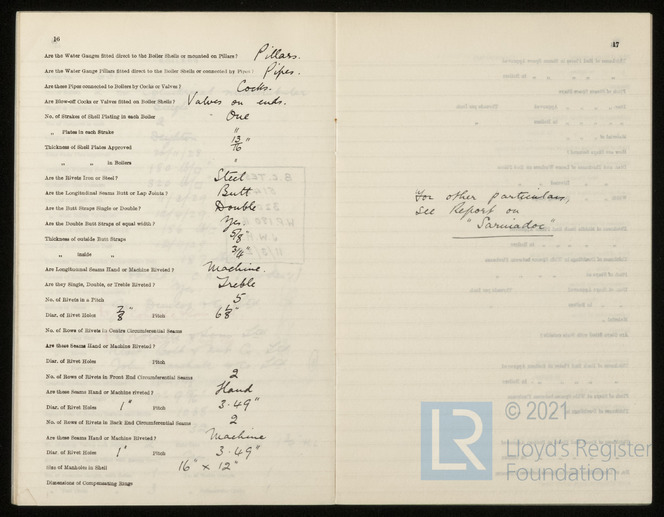 16
Are the Water Gauges fitted direct to the Boiler Shells or mounted on Pillars? Pillars.
Are the Water Gauge Pillars fitted direct to the Boiler Shells or connected by Pipes? Pipes.
Are these Pipes connected to Boilers by Cocks or Valves? Cocks.
Are Blow-off Cocks or Valves fitted on Boiler Shells? Valves on ends.
No. of Strakes of Shell Plating in each Boiler One
„ Plates in each Strake "
Thickness of Shell Plates Approved 13/16"
„ „ in Boilers "
Are the Rivets Iron or Steel? Steel
Are the Longitudinal Seams Butt or Lap Joints? Butt
Are the Butt Straps Single or Double? Double
Are the Double Butt Straps of equal width? Yes
Thickness of outside Butt Straps 5/8"
„ inside „ 3/4"
Are Longitudinal Seams Hand or Machine Riveted? Machine.
Are they Single, Double, or Treble Riveted? Treble
No. of Rivets in a Pitch 5
Diar. of Rivet Holes 7/8" Pitch 6 1/8"
No. of Rows of Rivets in Centre Circumferential Seams
Are these Seams Hand or Machine Riveted?
Diar. of Rivet Holes Pitch
No. of Rows of Rivets in Front End Circumferential Seams 2
Are these Seams Hand or Machine riveted? Hand
Diar. of Rivet Holes 1" Pitch 3.49"
No. of Rows of Rivets in Back End Circumferential Seams 2
Are these Seams Hand or Machine Riveted? Machine
Diar. of Rivet Holes 1" Pitch 3.49"
Size of Manholes in Shell 16" × 12"
Dimensions of Compensating Rings
17
For other particulars,
See Report on
"Sarmadoc"
LR
© 2021
Lloyd's Register
Foundation